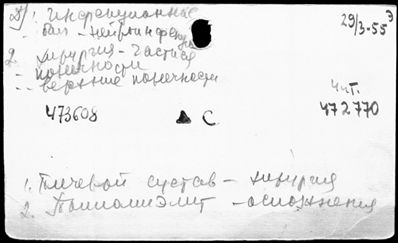 1. Инфекционные
бол. - нейроинфекции
29/3-55
2. Хирургия - частная
- конечности
-- верхние конечности
Чит.
473608
С.
472770
1. Плечевой сустав - хирургия
2. Полиомиэлит - осложнения